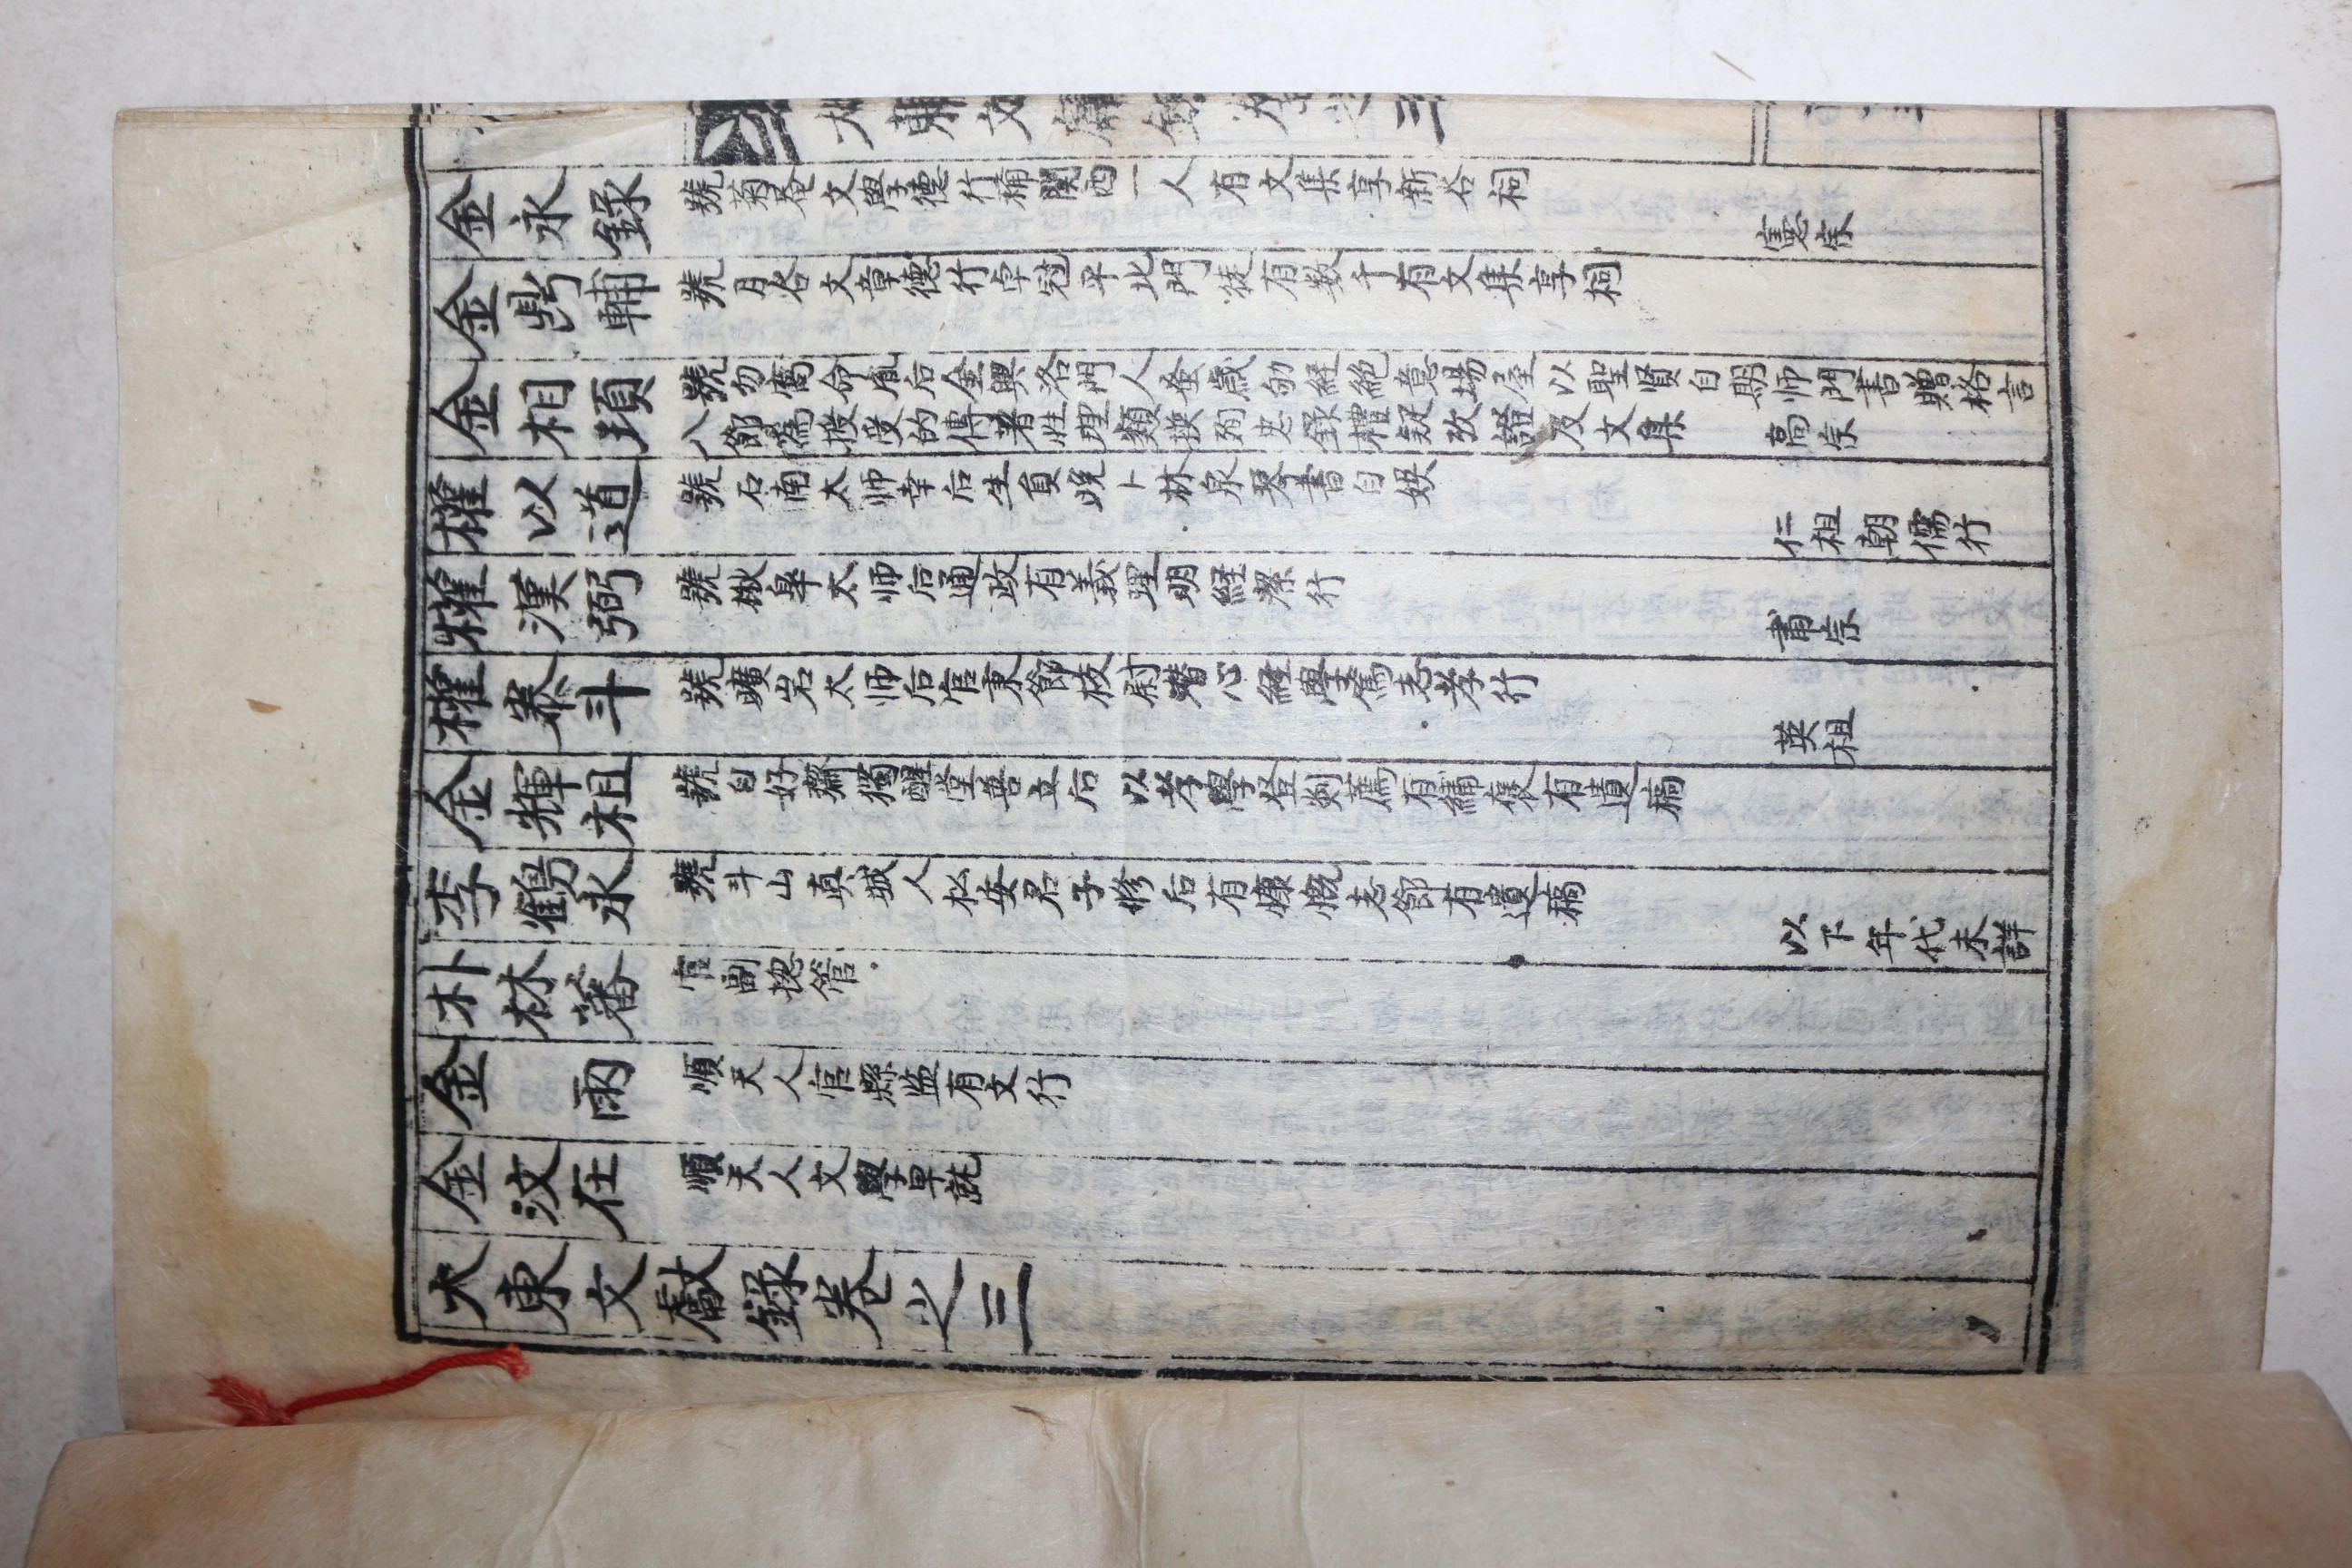 大東文獻錄卷之三
金永錄 號菊庵文學德行稱関西一人有文集享新谷祠 憲宗
金鼎輔 號月谷文章德行卓冠平北門徒有数千有文集享祠
金相頊 號勿窩命胤后金興洛門人蚤歲劬経絶意場屋以聖賢自期师門書贈格言
八節爲授受的傳著性理類揆殉忠錄禮疑攷證及文集 高宗
權以道 號石南太师幸后生負晩卜林泉琴書自娛 仁祖朝儒行
權漢弼 號楸皐太师后通政有義理明経潔行 肅宗
權泰斗 號曠岩太师后官秉節校尉潛心経學篤志孝行 英祖
金輝祖 號自好齋獨醒堂善立后以孝學登剡薦有繡褒有遺稿
李鶴永 號斗山真城人松安君子修后有慷慨志節有遺稿 以下年代未詳
朴林蕃 官副揔管
金雨 順天人官縣监有文行
金汶在 順天人文學早
大東文獻錄卷之三